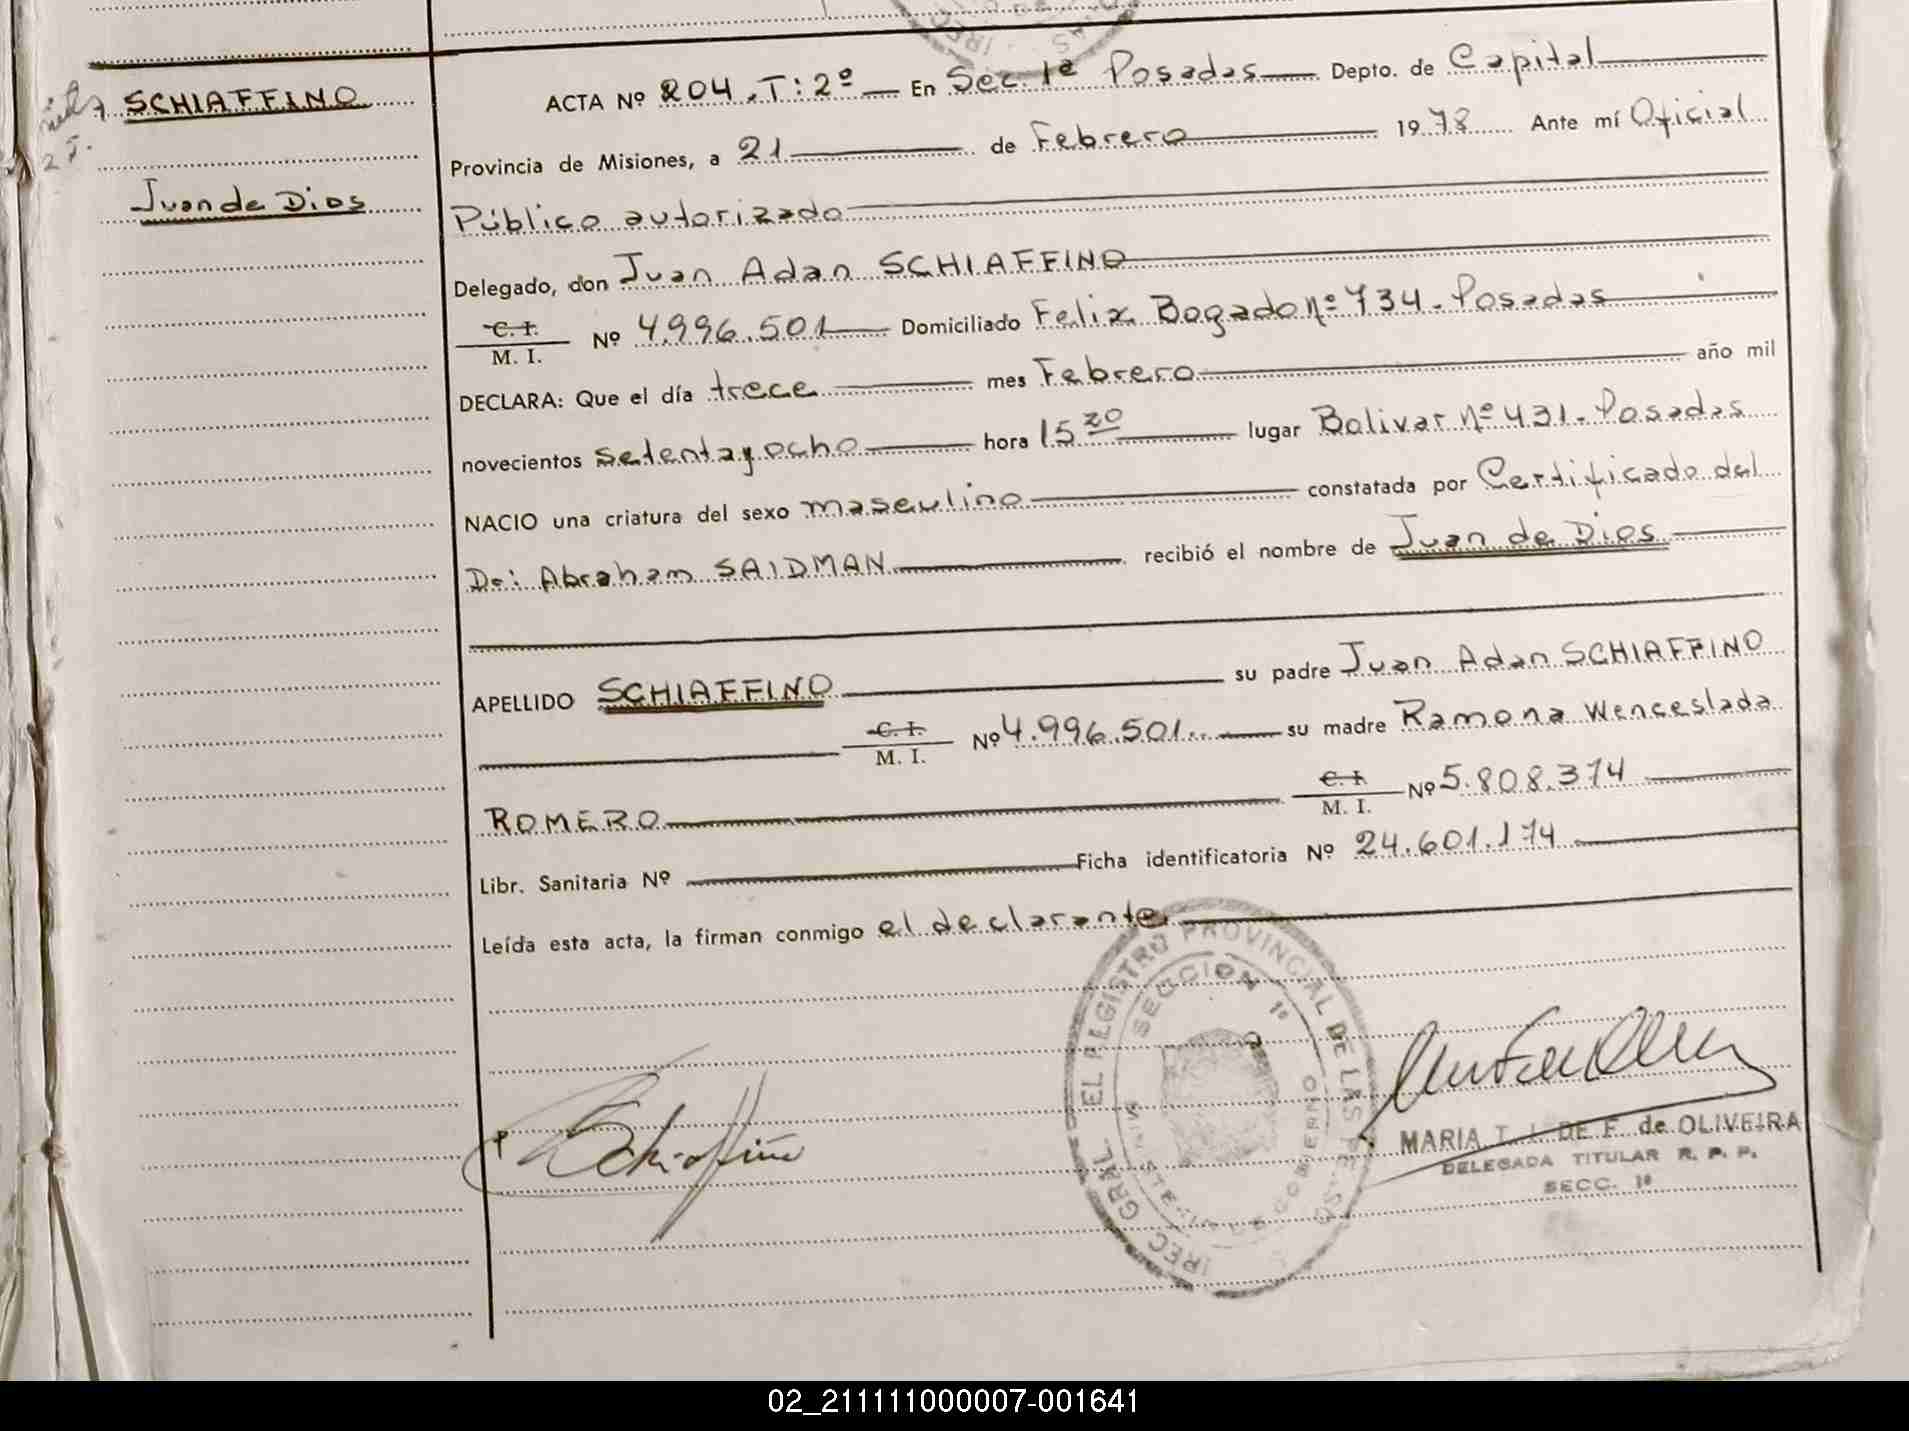 SCHIAFFINO
Juan de Dios
ACTA Nº 204. T: 2º En Sec. 1ª Posadas Depto. de Capital
Provincia de Misiones, a 21 de Febrero 1978 Ante mí Oficial
Público autorizado
Delegado, don Juan Adan SCHIAFFINO
C. I.
M. I. Nº 4.996.501 Domiciliado Felix Bogado nº 734. Posadas
DECLARA: Que el día trece mes Febrero año mil
novecientos setenta y ocho hora 15 20 lugar Bolivar Nº 431. Posadas
NACIO una criatura del sexo masculino constatada por Certificado del
Dr: Abraham SAIDMAN recibió el nombre de Juan de Dios
APELLIDO SCHIAFFINO su padre Juan Adan SCHIAFFINO
C. I.
M. I. Nº 4.996.501. su madre Ramona Wenceslada
ROMERO C. I.
M. I. Nº 5.808.374
Libr. Sanitaria Nº Ficha identificatoria Nº 24.601.174
Leída esta acta, la firman conmigo el declarante
Schiaffino
SECCION 1º
MARIA T. J. DE F. de OLIVEIRA
DELEGADA TITULAR R. P. P.
SECC. 1º
02_211111000007-001641